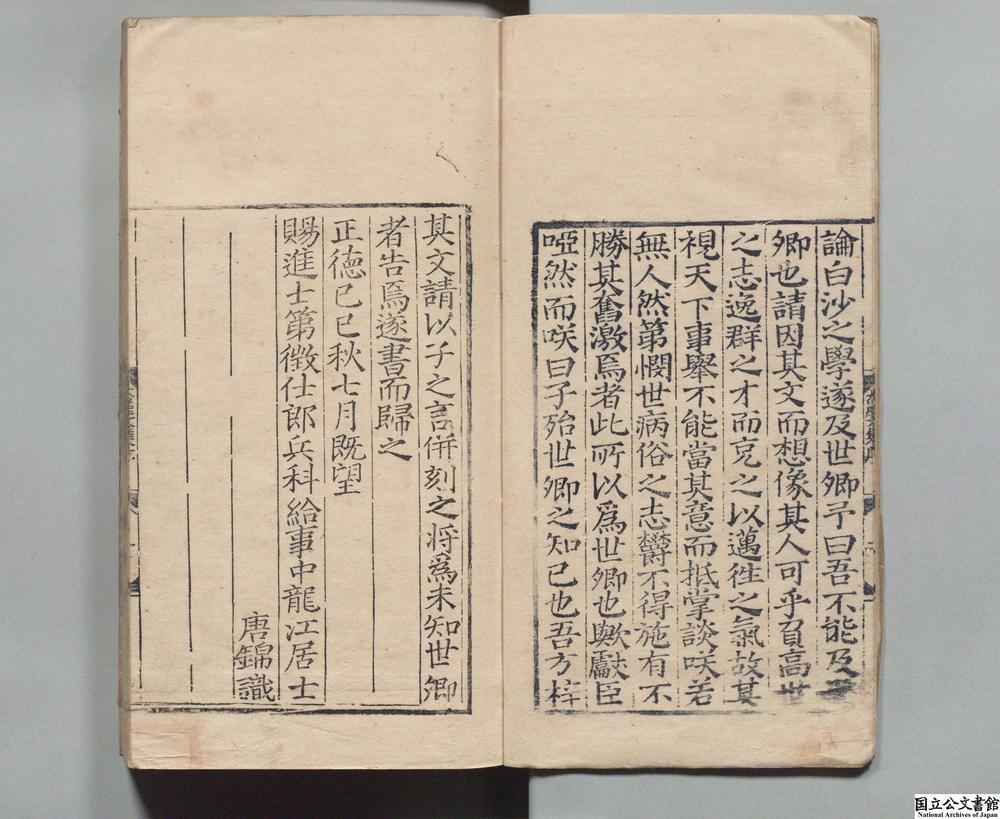 論白沙之學遂及世卿予曰吾不能及世
卿也請因其文而想像其人可乎負高世
之志逸群之才而克之以邁徃之氣故其
視天下事舉不能當其意而抵掌談咲若
無人然第憫世病俗之志欝不得施有不
勝其奮激焉者此所以爲世卿也歟獻臣
啞然而咲曰子殆世卿之知已也吾方梓
其文請以子之言併刻之将爲未知世卿
者告焉遂書而歸之
正德已巳秋七月既望
賜進士第徵仕郎兵科給事中龍江居士
唐錦識
国立公文書館
National Archives of Japan